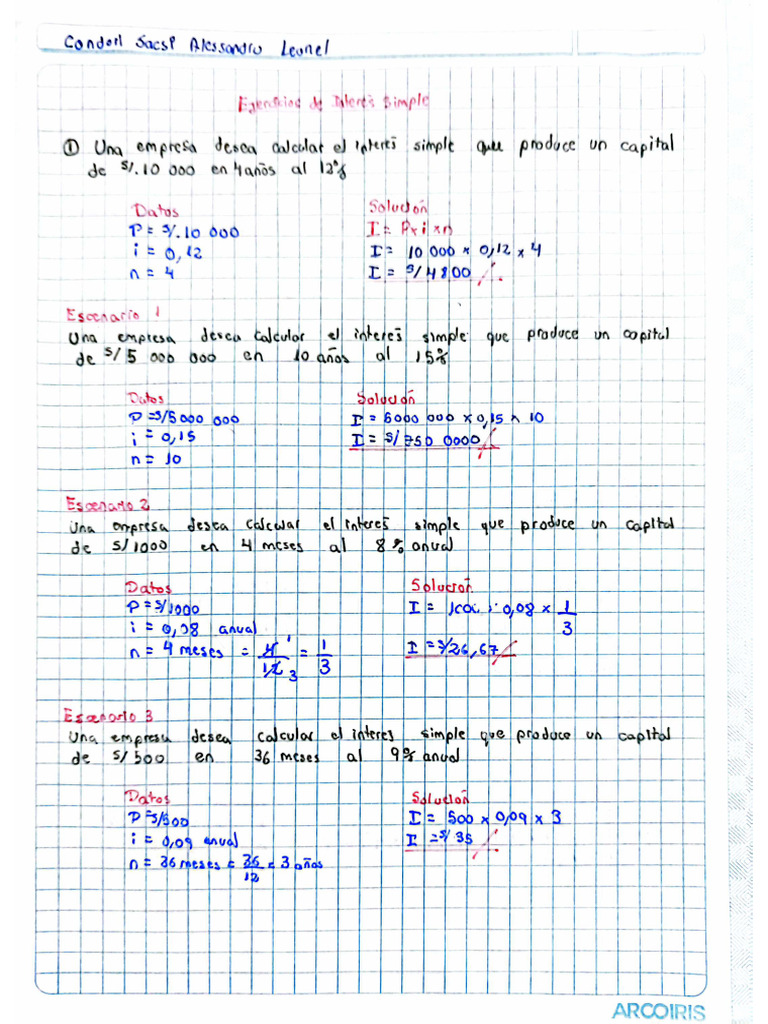 Condori Sacsi Alessandro Leonel
Ejercicios de Interés Simple
① Una empresa desea calcular el interés simple que produce un capital
de S/.10 000 en 4 años al 12%
Datos
P = S/.10 000
i = 0,12
n = 4
Solución
I = P x i x n
I = 10 000 x 0,12 x 4
I = S/4800
Escenario 1
Una empresa desea calcular el interés simple que produce un capital
de S/5 000 000 en 10 años al 15%
Datos
P = S/5000 000
i = 0,15
n = 10
Solución
I = 5000 000 x 0,15 x 10
I = S/750 0000
Escenario 2
Una empresa desea calcular el interes simple que produce un capital
de S/1000 en 4 meses al 8% anual
Datos
P = S/1000
i = 0,08 anual
n = 4 meses = 4/12 1/3 = 1/3
Solución
I = 0,08 x 1/3
I = S/26,67
Escenario 3
Una empresa desea calcular el interes simple que produce un capital
de S/500 en 36 meses al 9% anual
Datos
P = S/500
i = 0,09 anual
n = 36 meses = 36/12 = 3 años
Solución
I = 500 x 0,09 x 3
I = S/35
ARCOIRIS